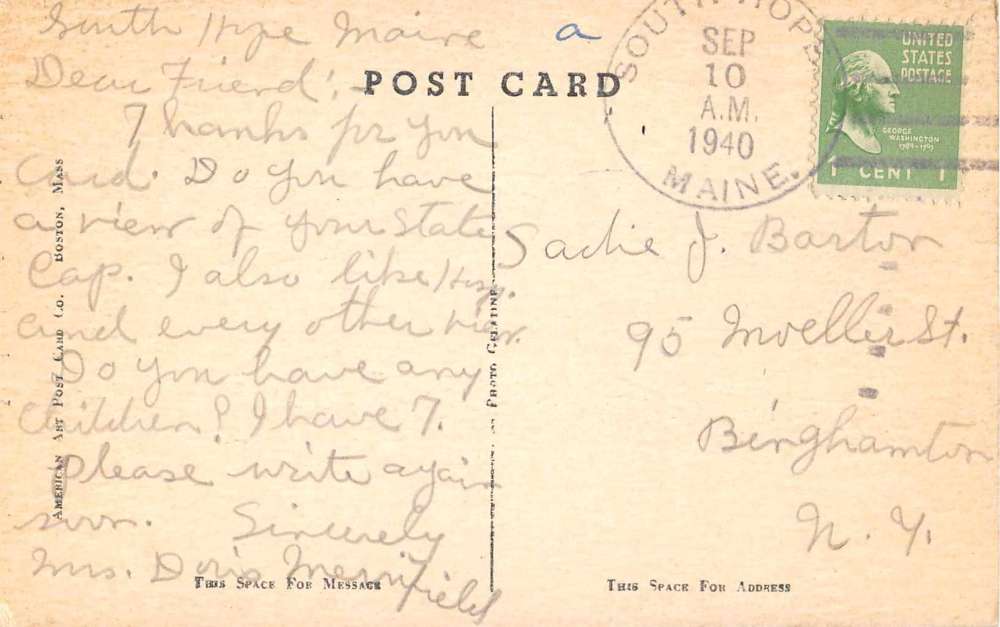 South Hope Maine
Dear Friend;
Thanks for you
Card. Do you have
a view of your State
Cap. I also like Hosp.
and every other view.
Do you have any
Children? I have 7.
Please write again
soon. Sincerely
Mrs. Doris Merrifield
a
POST CARD
SOUTH HOPE
SEP
10
A.M.
1940
MAINE.
UNITED
STATES
POSTAGE
GEORGE
WASHINGTON
1789-1797
1 CENT 1
Sadie J. Barton
95 Moeller St.
Binghamton
N. Y.
AMERICAN ART POST CARD CO. BOSTON, MASS
PHOTO GELATINE
THIS SPACE FOR MESSAGE
THIS SPACE FOR ADDRESS